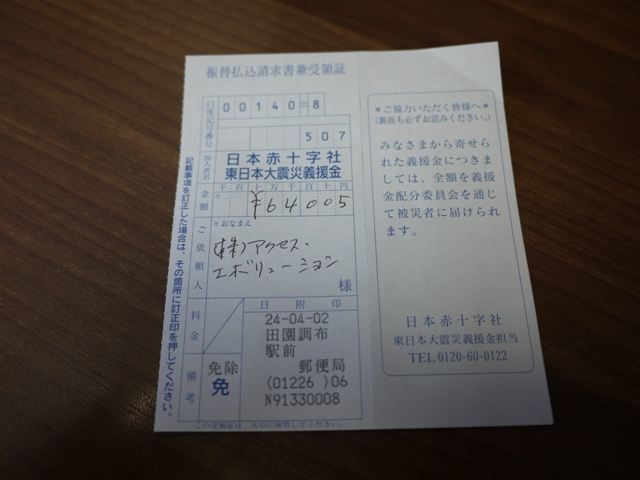 振替払込請求書兼受領証
口座記号番号
00140=8
507
加入者名
日本赤十字社
東日本大震災義援金
金額
千百十万千百十円
¥64005
ご依頼人
*おなまえ
(株)アクセス・
エボリューション
様
料金
日附印
免除
免
24-04-02
田園調布
駅前
郵便局
(01226 )06
N91330008
備考
記載事項を訂正した場合は、その箇所に訂正印を押してください。
この受領証は、大切に保管してください。
*ご協力いただく皆様へ*
(裏面も必ずお読みください。)
みなさまから寄せら
れた義援金につきま
しては、全額を義援
金配分委員会を通じ
て被災者に届けられ
ます。
日本赤十字社
東日本大震災義援金担当
TEL 0120-60-0122